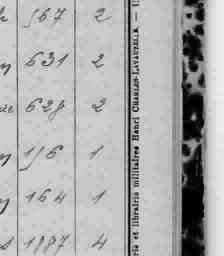 567 2
631 2
628 2
156 1
164 1
1987 4
rie et librairie militaires Henri CHARLES-LAVAUZELLE. —